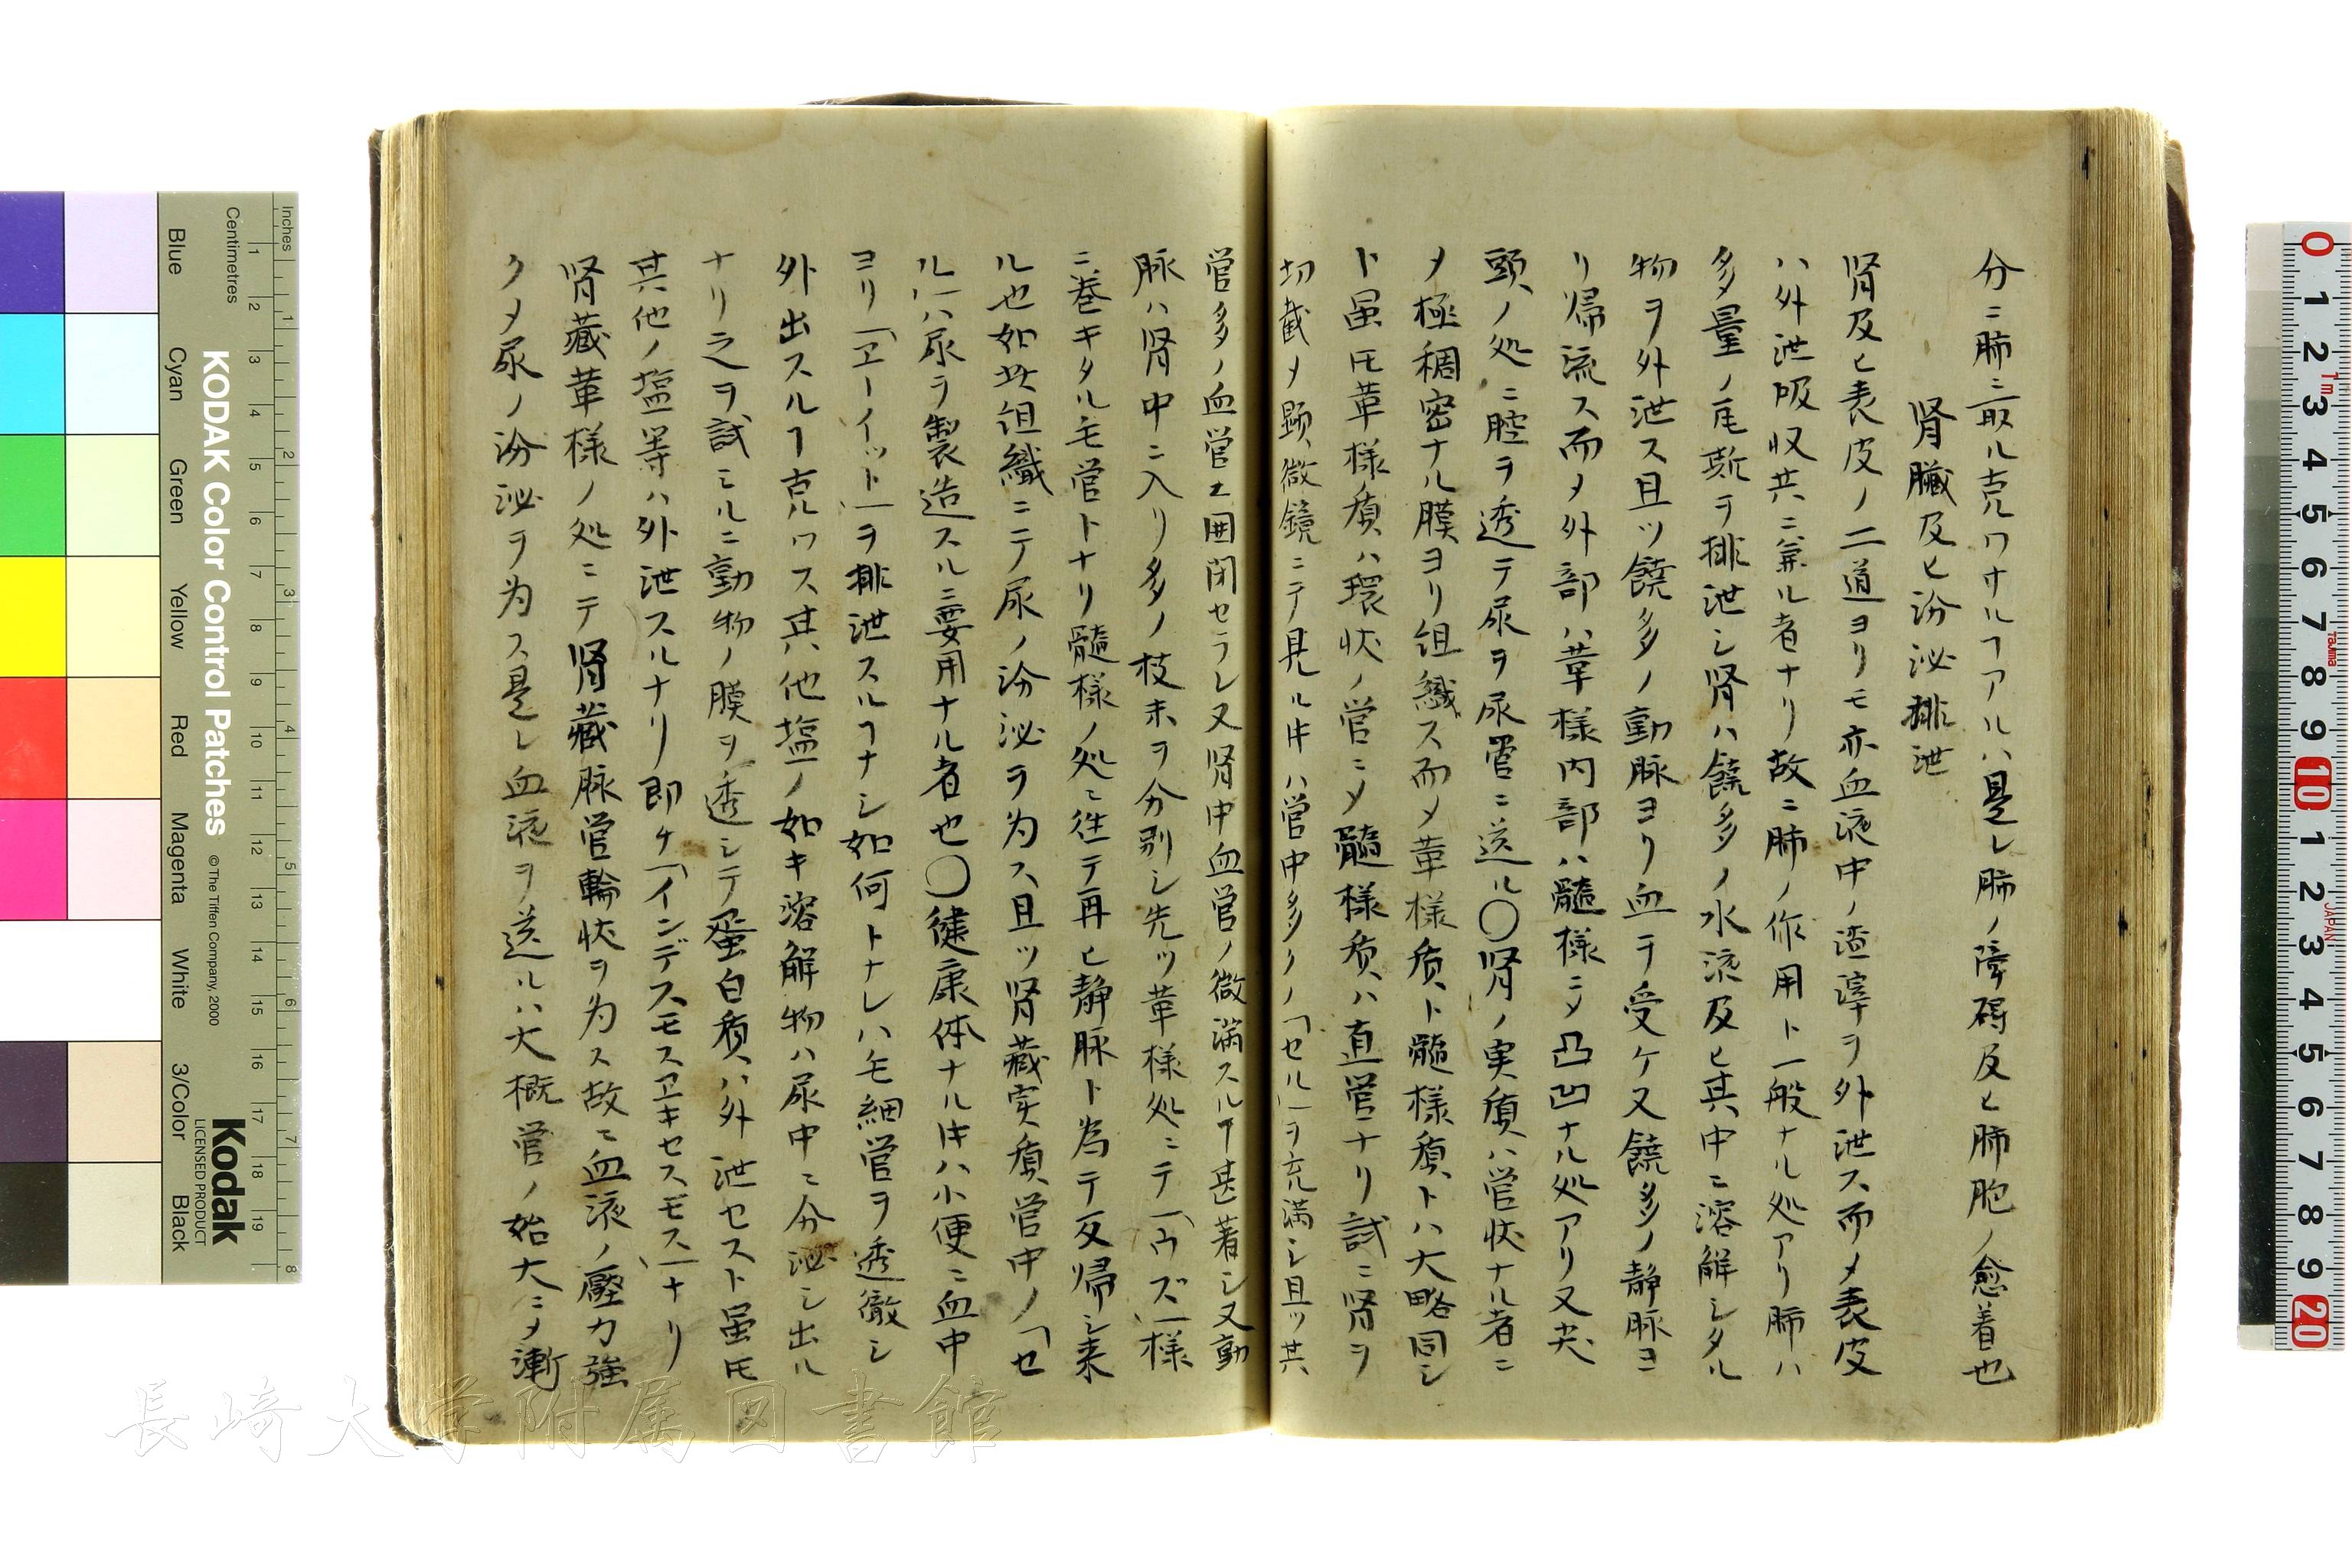 分ニ肺ニ取ル克ワサルヿアルハ是レ肺ノ障碍及ヒ肺胞ノ愈着也
腎臓及ヒ汾泌排泄
腎及ヒ表皮ノ二道ヨリモ亦血液中ノ渣滓ヲ外泄ス而メ表皮
ハ外泄吸収共ニ兼ル者ナリ故ニ肺ノ作用ト一般ナル処アリ肺ハ
多量ノ瓦斯ヲ排泄シ腎ハ饒多ノ水液及ヒ其中ニ溶解シタル
物ヲ外泄ス且ツ饒多ノ動脉ヨリ血ヲ受ケ又饒多ノ静脉ヨ
リ帰流ス而メ外部ハ革様内部ハ髓様ニメ凸凹ナル処アリ又尖
頭ノ処ニ腔ヲ透テ尿ヲ尿管ニ送ル〇腎ノ実質ハ管状ナル者ニ
メ極稠密ナル膜ヨリ組織ス而メ革様質ト髓様質トハ大略同シ
ト虽𪜈革様質ハ環状ノ管ニメ髓様質ハ直管ナリ試ニ腎ヲ
切截メ顕微鏡ニテ見ル𪜈ハ管中多クノ「セル」ヲ充満シ且ツ其
管多ノ血管ニ囲閉セラレ又腎中血管ノ微満スルヿ甚著シ又動
脉ハ腎中ニ入リ多ノ枝末ヲ分別シ先ツ革様処ニテ「ウズ」様
ニ巻キタルモ管トナリ髓様ノ処ニ徃テ再ヒ静脉ト為テ反帰シ来
ル也如此組織ニテ尿ノ汾泌ヲ为ス且ツ腎藏実質管中ノ「セ
ル」ハ尿ヲ製造スルニ要用ナル者也〇健康体ナル𪜈ハ小便ニ血中
ヨリ「ヱーイット」ヲ排泄スルヿナシ如何トナレハモ細管ヲ透徹シ
外出スルヿ克ハス其他塩ノ如キ溶解物ハ尿中ニ分泌シ出ル
ナリ之ヲ試ミルニ動物ノ膜ヲ透シテ蛋白質ハ外泄セスト虽𪜈
其他ノ塩等ハ外泄スルナリ即ケ「インデスモスヱキセスモス」ナリ
腎藏革様ノ処ニテ腎藏脉管輪状ヲ为ス故ニ血液ノ壓力強
クメ尿ノ汾泌ヲ为ス是レ血液ヲ送ルハ大概管ノ始大ニメ漸
KODAK Color Control Patches
© The Tiffen Company, 2000
Kodak
LICENSED PRODUCT
Inches
Centimetres
Blue
Cyan
Green
Yellow
Red
Magenta
White
3/Color
Black
長崎大学附属図書館